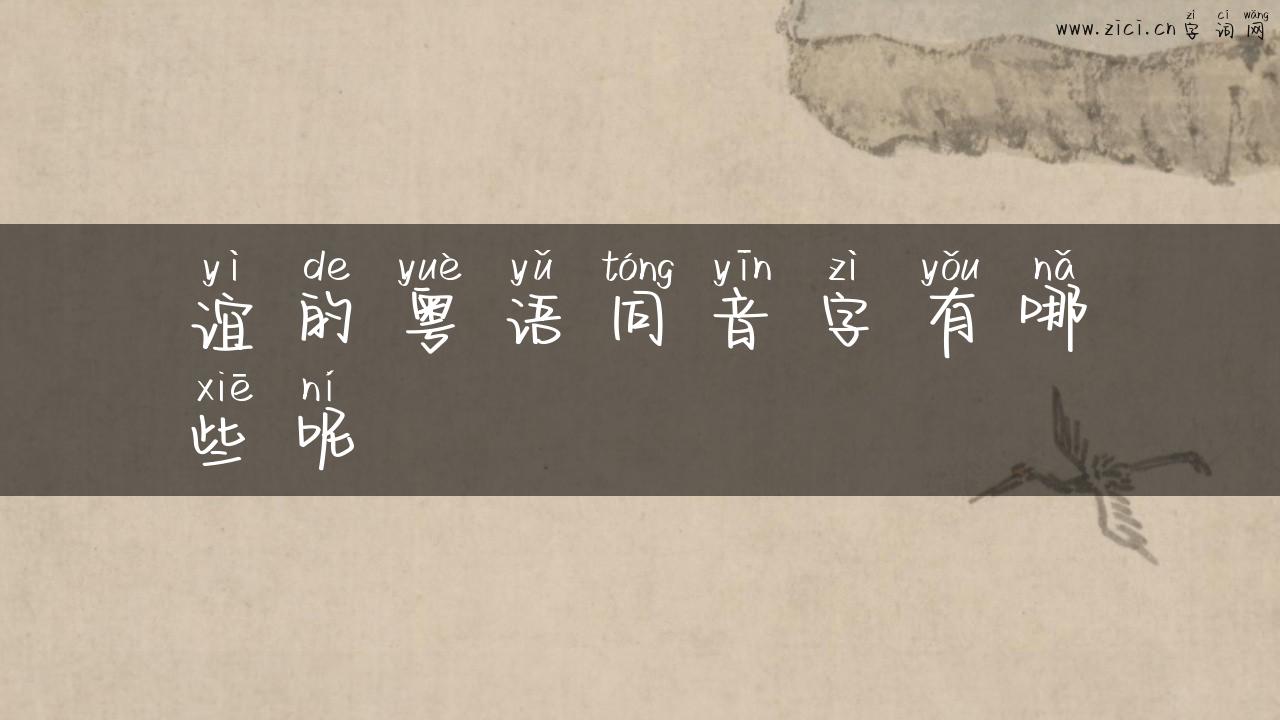 zì cí wǎng
www.zici.cn 字 词 网
yì de yuè yǔ tóng yīn zì yǒu nǎ
谊 的 粤 语 同 音 字 有 哪
xiē ní
些 呢